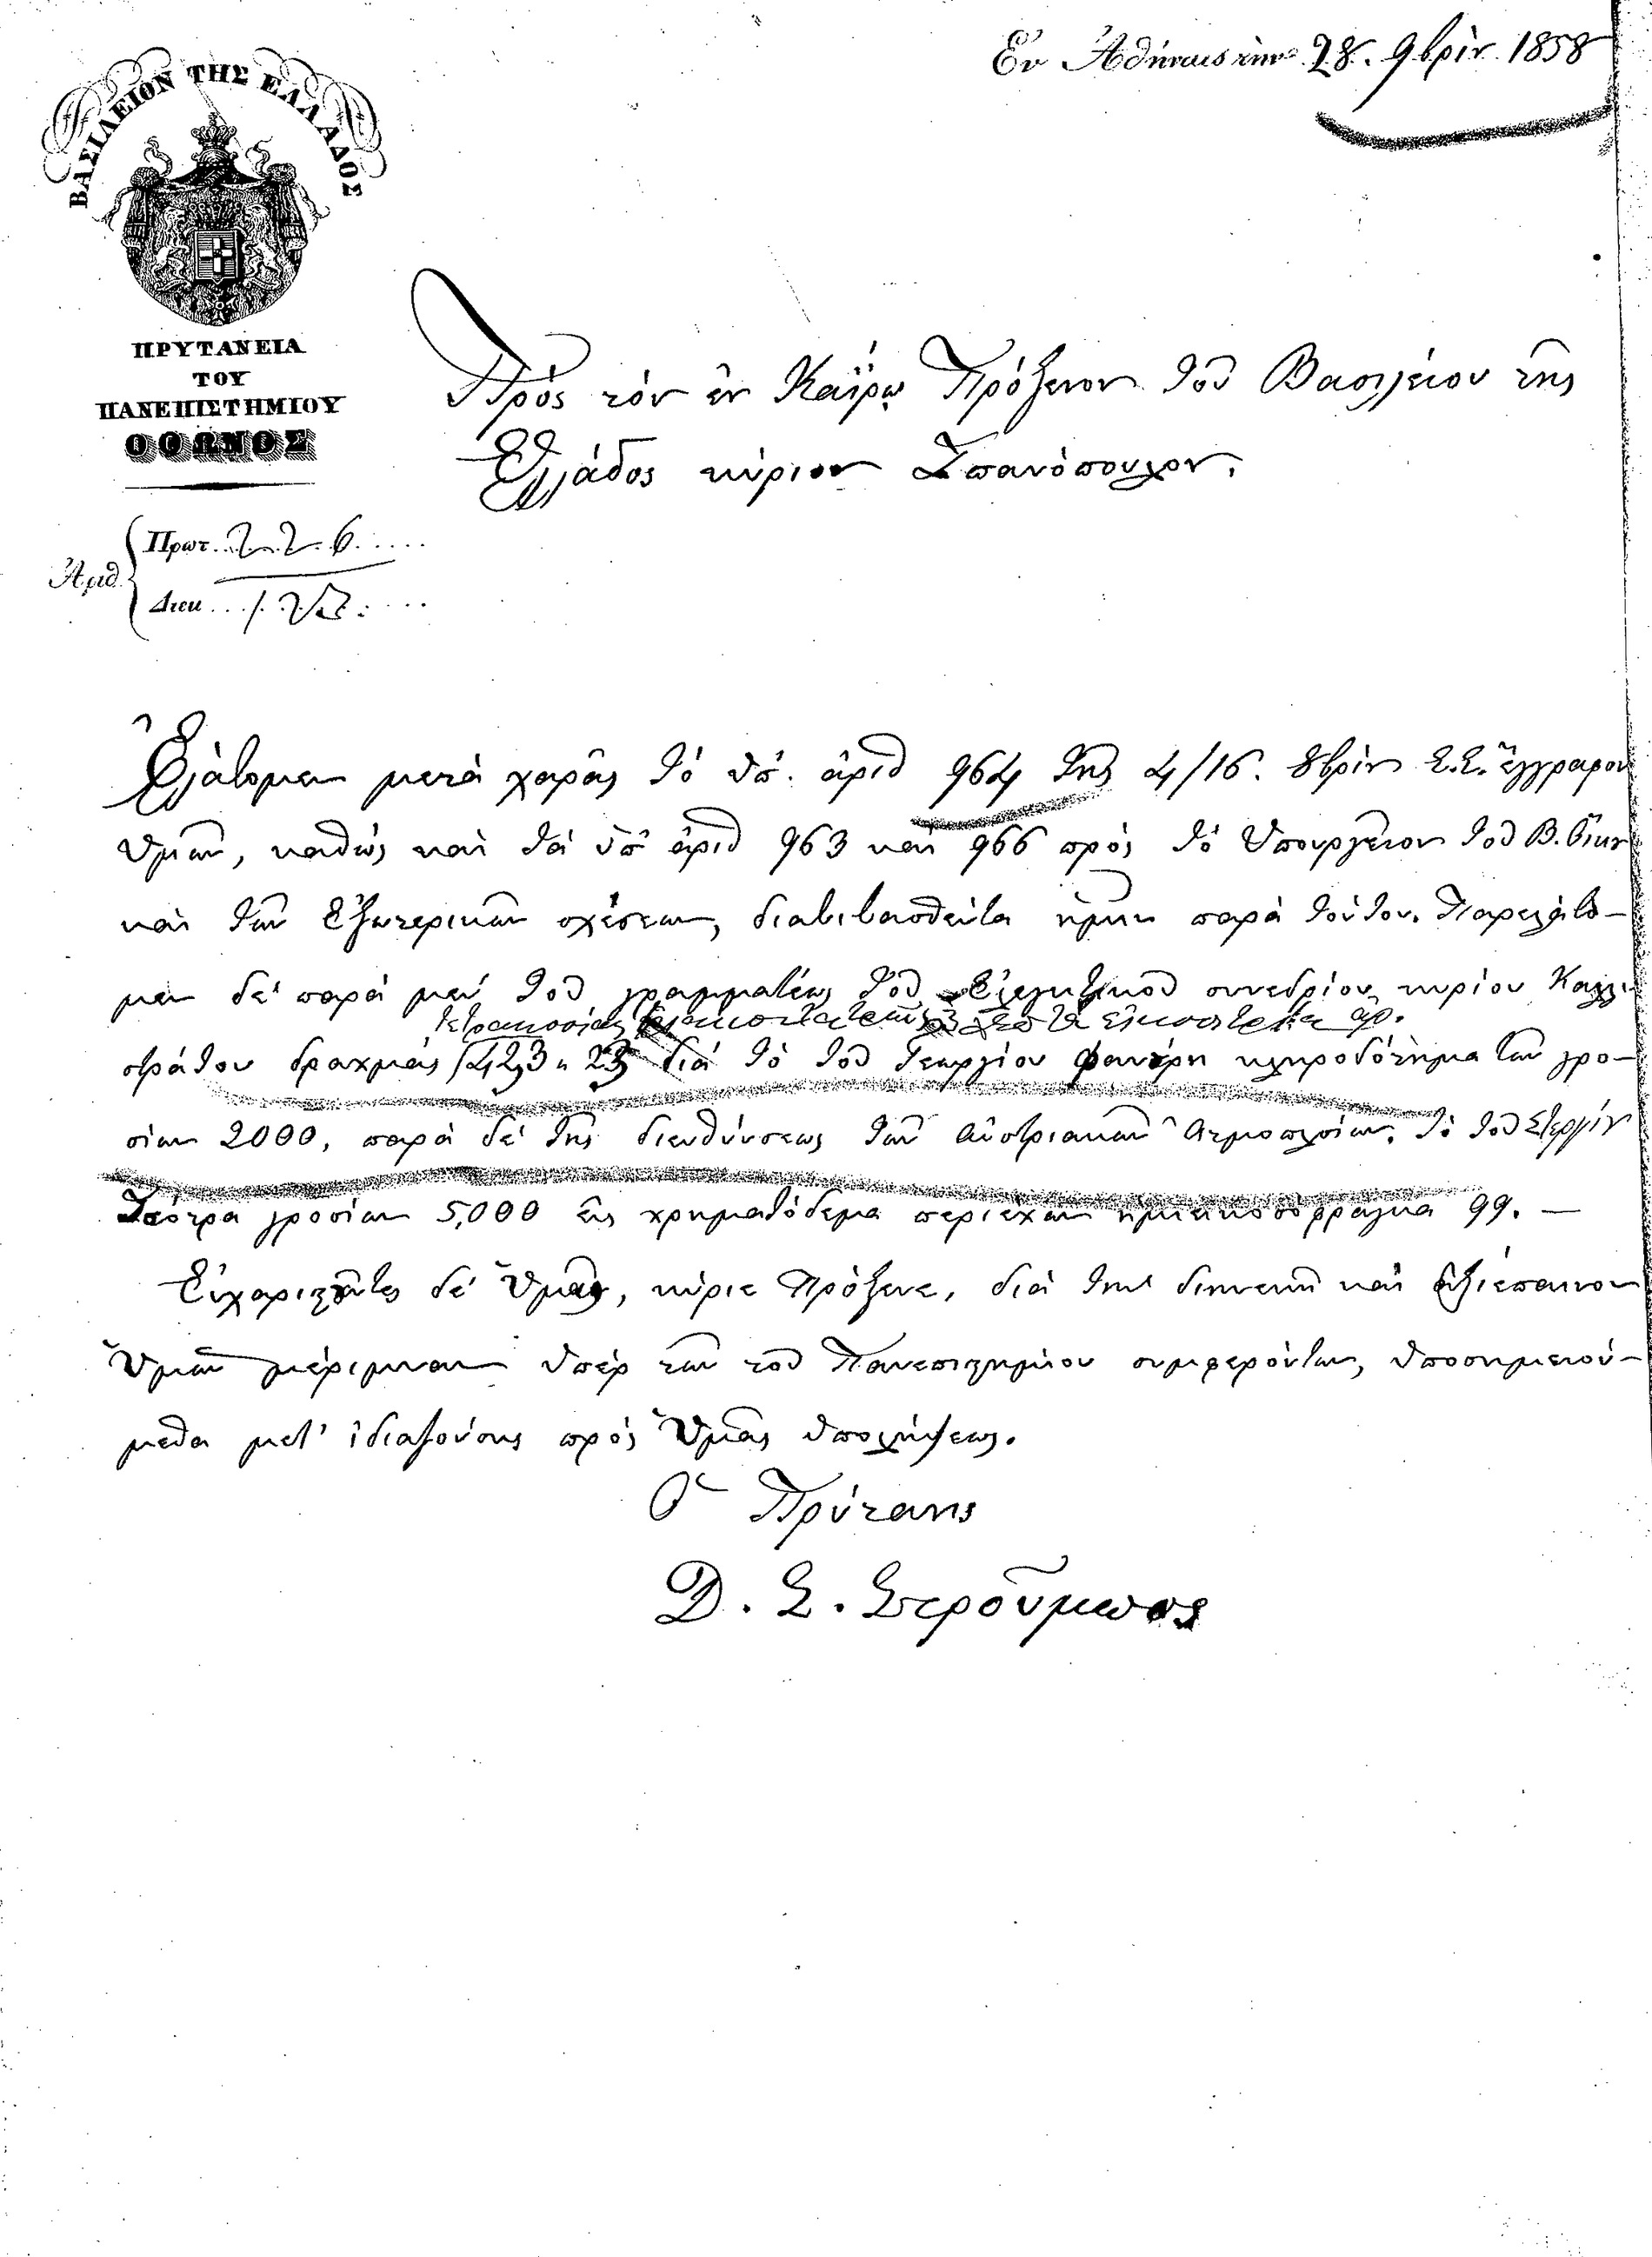 Ἐν Ἀθήναις τὴν 28. 9βρίου 1858
ΒΑΣΙΛΕΙΟΝ ΤΗΣ ΕΛΛΑΔΟΣ
ΠΡΥΤΑΝΕΙΑ
ΤΟΥ
ΠΑΝΕΠΙΣΤΗΜΙΟΥ
ΟΘΩΝΟΣ
Πρὸς τὸν ἐν Καΐρῳ Πρόξενον τοῦ Βασιλείου τῆς
Ἑλλάδος κύριον Σπανόπουλον.
Ἀριθ.
Πρωτ. 226.
Διεκ.
Ἐλάβομεν μετὰ χαρᾶς τὸ ὑπ. ἀριθ 964 τῆς 4/16. 8βρίου ἔγγραφον
Ὑμῶν, καθὼς καὶ τὰ ὑπ' ἀριθ 963 καὶ 966 πρὸς τὸ Ὑπουργεῖον τοῦ Β. Οἴκου
καὶ τῶν Ἐξωτερικῶν σχέσεων, διαβιβασθέντα ἡμῖν παρὰ τούτου. Παρελάβο-
μεν δὲ παρὰ μὲν τοῦ γραμματέως τοῦ Ἐλεγκτικοῦ συνεδρίου κυρίου Καλλι-
τετρακοσίας εἴκοσι
στράτου δραχμὰς 423 " 23 διὰ τὸ τοῦ Γεωργίου Φανάρη κληροδότημα τῶν γρο-
σίων 2000, παρὰ δὲ τῆς διευθύνσεως τῶν Αὐστριακῶν Ἀτμοπλοίων, τὸ τοῦ Στεργίου
γροσίων 5,000 εἰς χρηματόδεμα περιέχον ἡμιεικοσόφραγκα 99. —
Εὐχαριστοῦντες δὲ Ὑμᾶς, κύριε Πρόξενε, διὰ τὴν διηνεκῆ καὶ ἀξιέπαινον
Ὑμῶν μέριμναν ὑπὲρ τῶν τοῦ Πανεπιστημίου συμφερόντων, ὑποσημειού-
μεθα μετ' ἰδιαζούσης πρὸς Ὑμᾶς ὑπολήψεως.
Ὁ Πρύτανις
Δ. Σ. Στροῦμπος